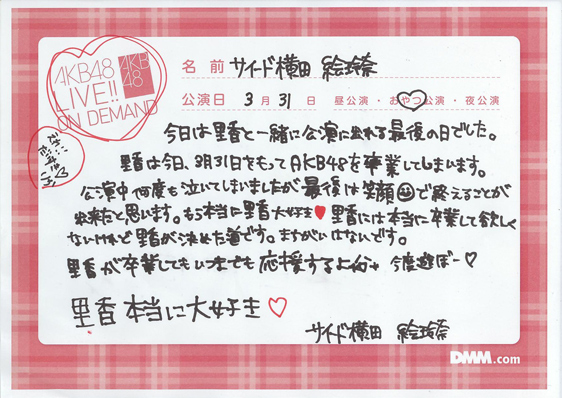 AKB48
LIVE!!
ON DEMAND
AKB
48
名前 サイド横田 絵玲奈
公演日 3月31日 昼公演・おやつ公演・夜公演
今日は里香と一緒に公演に出れる最後の日でした。
里香は今日、3月31日をもってAKB48を卒業してしまいます。
公演中何度も泣いてしまいましたが最後は笑顔で終えることが
出来たと思います。もう本当に里香大好き♥里香には本当に卒業して欲しく
ないけれど里香が決めた道です。まちがいはないです。
里香が卒業してもいつまでも応援するよん 今度遊ぼー♡
里香 本当に大好き♡
サイド横田 絵玲奈
DMM.com